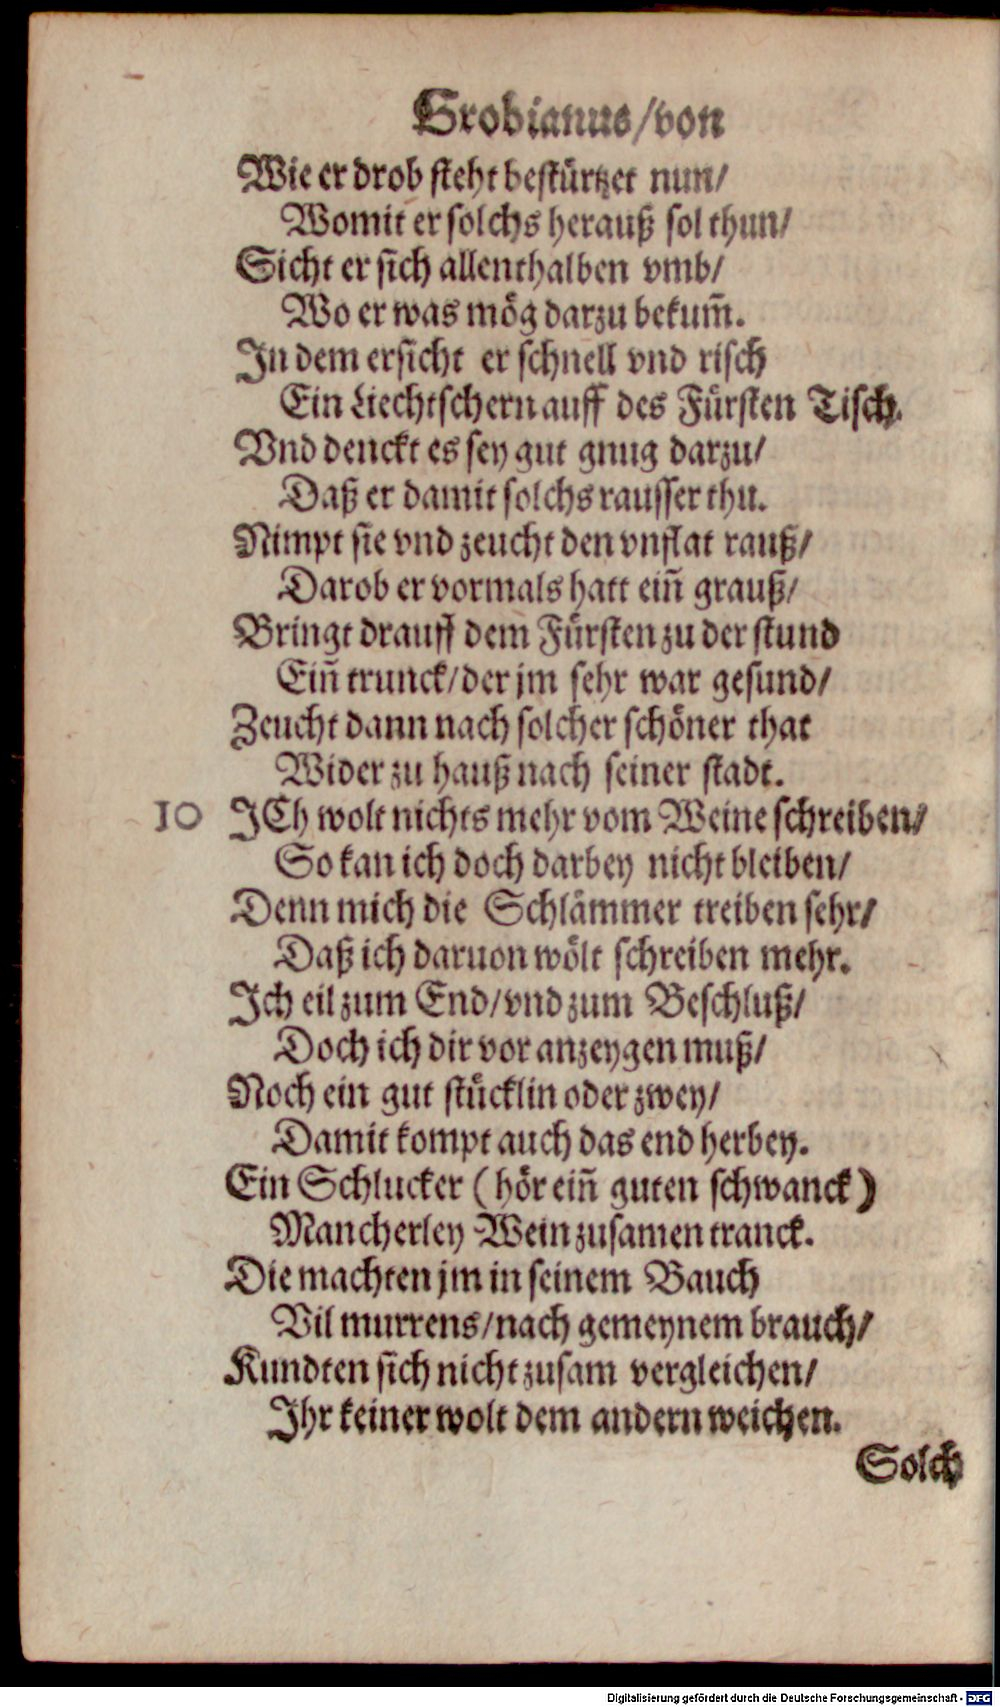 Grobianus/von
Wie er drob steht bestürtzet nun/
Womit er solchs herauß sol thun/
Sicht er sich allenthalben vmb/
Wo er was mög darzu bekum̃.
In dem ersicht er schnell vnd risch
Ein Liechtschern auff des Fürsten Tisch.
Vnd denckt es sey gut gnug darzu/
Daß er damit solchs rausser thu.
Nimpt sie vnd zeucht den vnflat rauß/
Darob er vormals hatt eiñ grauß/
Bringt drauff dem Fürsten zu der stund
Eiñ trunck/der jm sehr war gesund/
Zeucht dann nach solcher schöner that
Wider zu hauß nach seiner stadt.
10 ICh wolt nichts mehr vom Weine schreiben/
So kan ich doch darbey nicht bleiben/
Denn mich die Schlämmer treiben sehr/
Daß ich daruon wölt schreiben mehr.
Ich eil zum End/vnd zum Beschluß/
Doch ich dir vor anzeygen muß/
Noch ein gut stücklin oder zwey/
Damit kompt auch das end herbey.
Ein Schlucker (hör eiñ guten schwanck)
Mancherley Wein zusamen tranck.
Die machten jm in seinem Bauch
Vil murrens/nach gemeynem brauch/
Kundten sich nicht zusam vergleichen/
Ihr keiner wolt dem andern weichen.
Solch
Digitalisierung gefördert durch die Deutsche Forschungsgemeinschaft - DFG